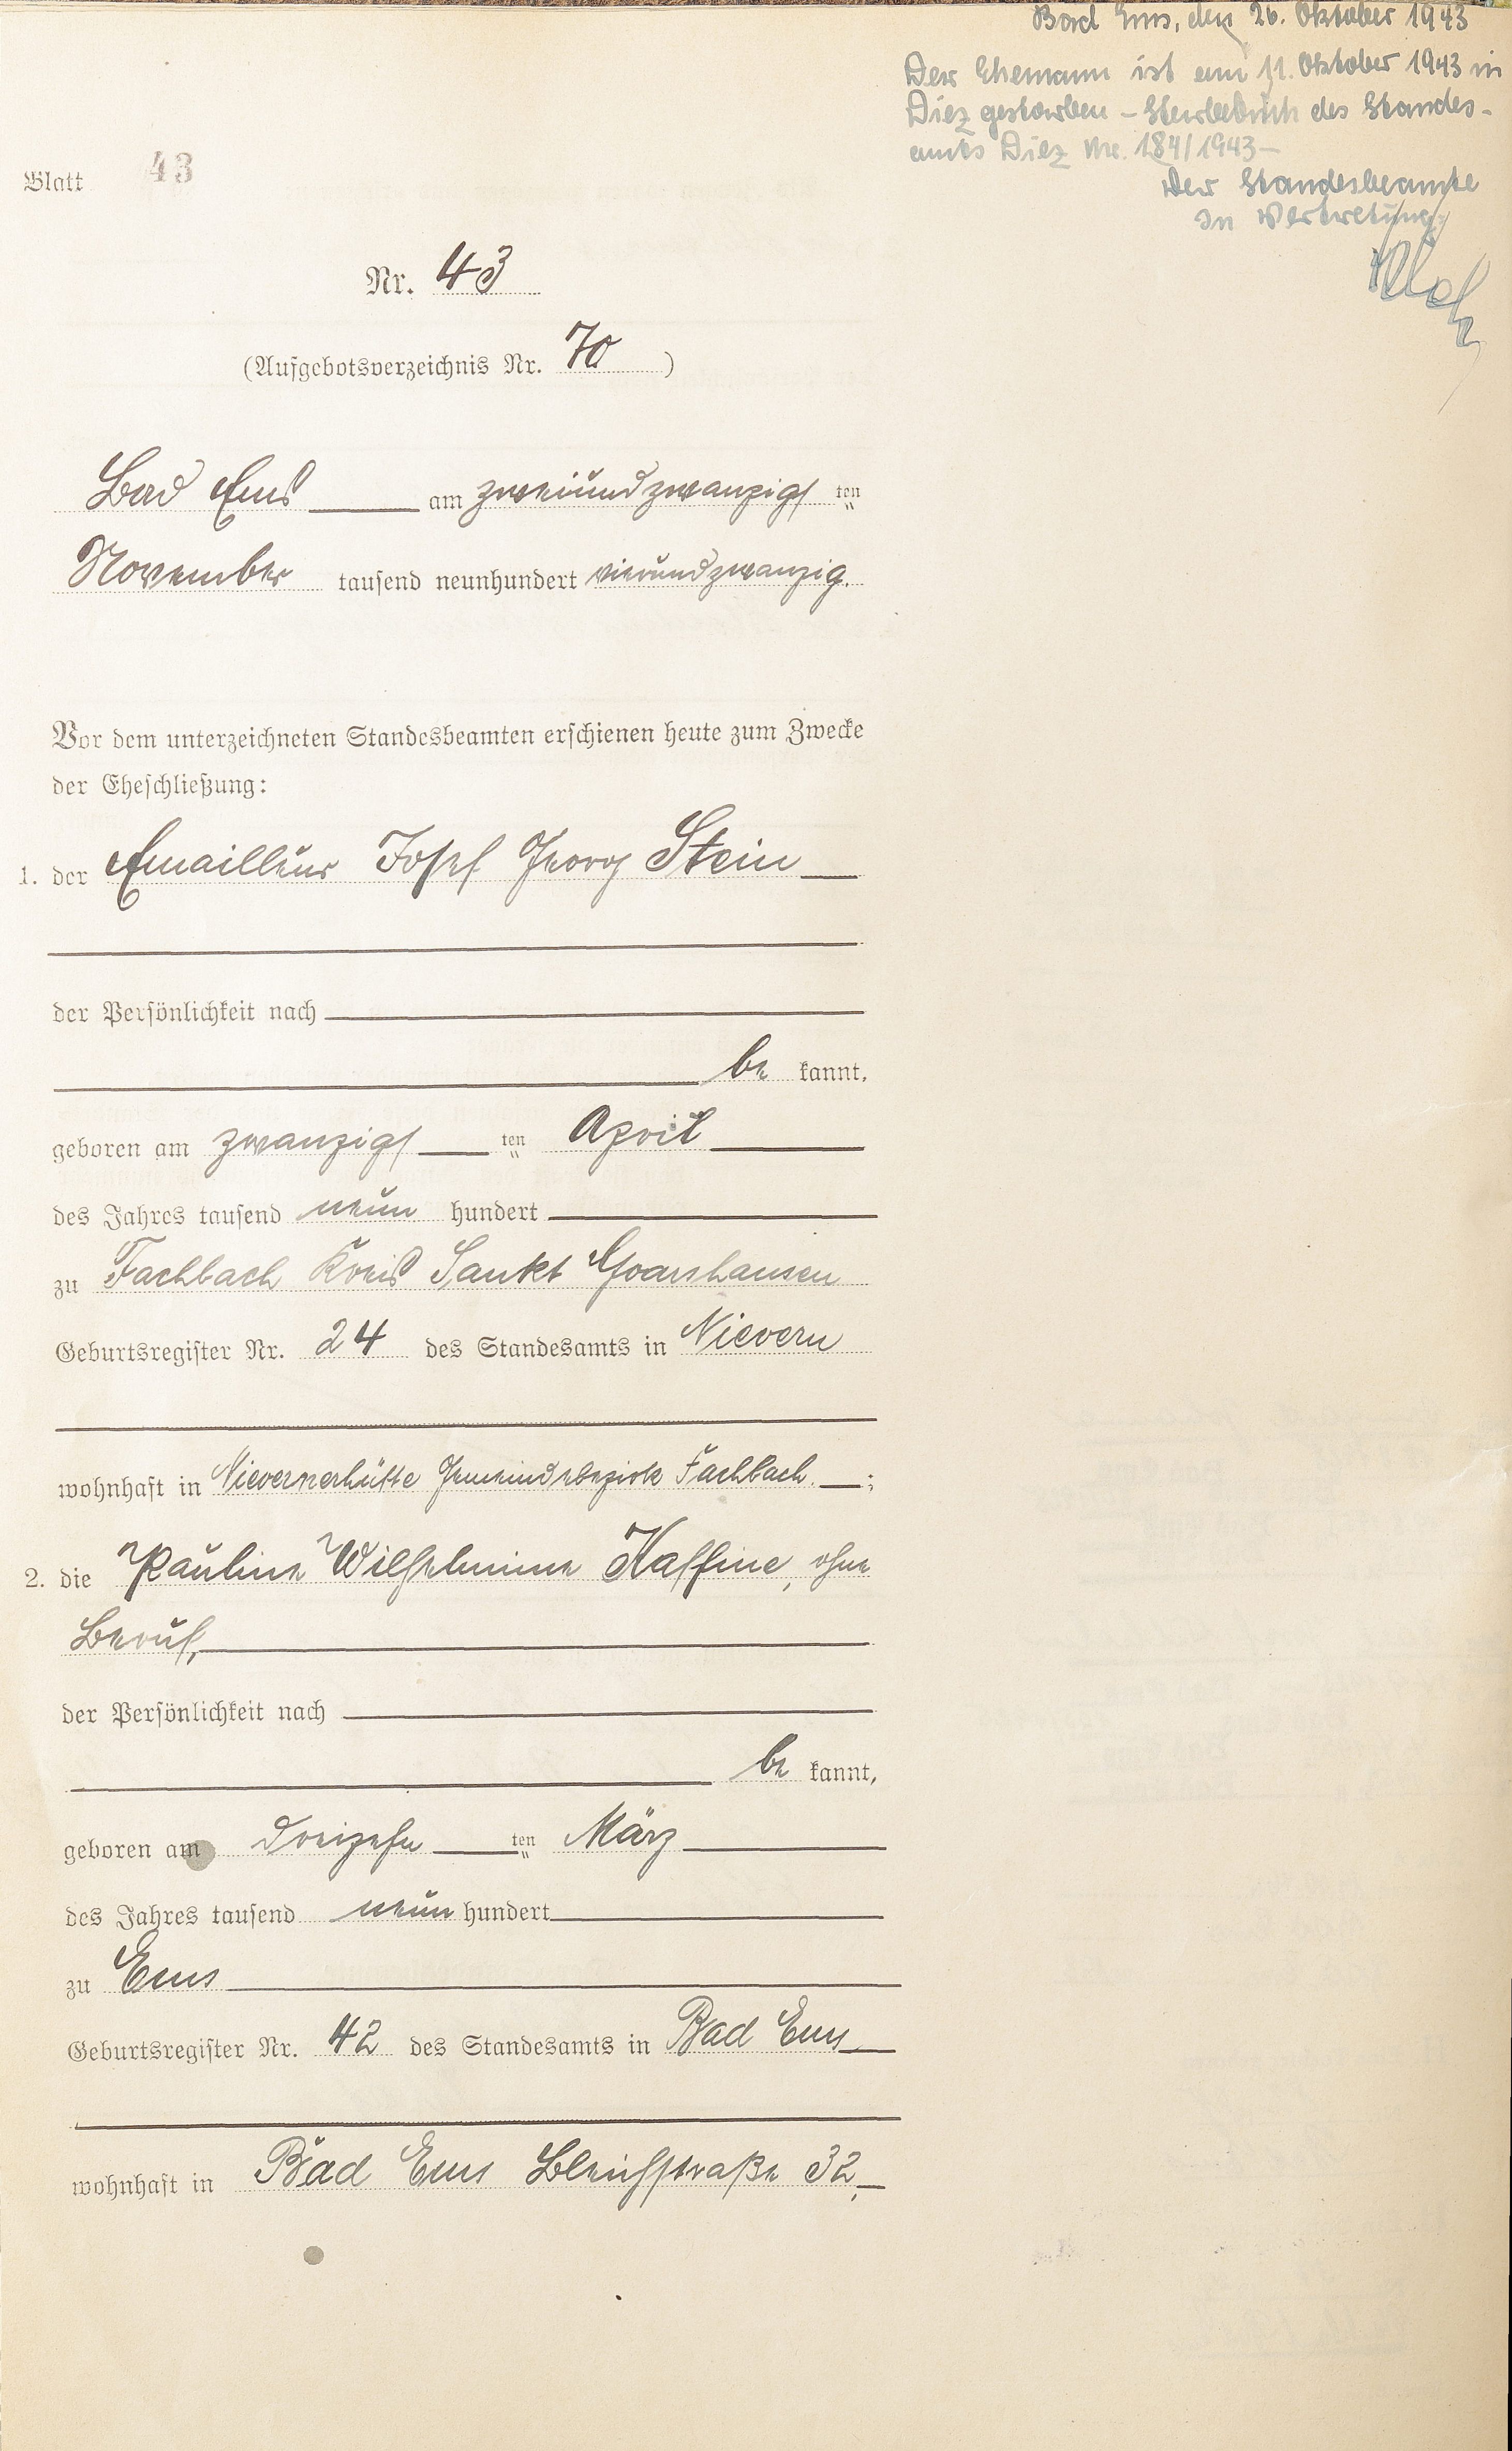 Bad Ems, den 26. Oktober 1943
Der Ehemann ist am 11. Oktober 1943 in
Diez gestorben – Sterbebuch des Standes-
amts Diez Nr. 184/1943 –
Der Standesbeamte
In Vertretung:
Blatt 43
Nr. 43
(Aufgebotsverzeichnis Nr. 70)
Bad Ems am zweiundzwanzigsten
November tausend neunhundert vierundzwanzig.
Vor dem unterzeichneten Standesbeamten erschienen heute zum Zwecke
der Eheschließung:
1. der Emailleur Josef Georg Stein
der Persönlichkeit nach
be kannt,
geboren am zwanzigsten April
des Jahres tausend neun hundert
zu Fachbach Kreis Sankt Goarshausen
Geburtsregister Nr. 24 des Standesamts in Nievern
wohnhaft in Nievernerhütte Gemeindebezirk Fachbach. ;
2. die Pauline Wilhelmine Kaffine, ohne
Beruf,
der Persönlichkeit nach
be kannt,
geboren am dreizehnten März
des Jahres tausend neun hundert
zu Ems
Geburtsregister Nr. 42 des Standesamts in Bad Ems
wohnhaft in Bad Ems Bleichstraße 32,